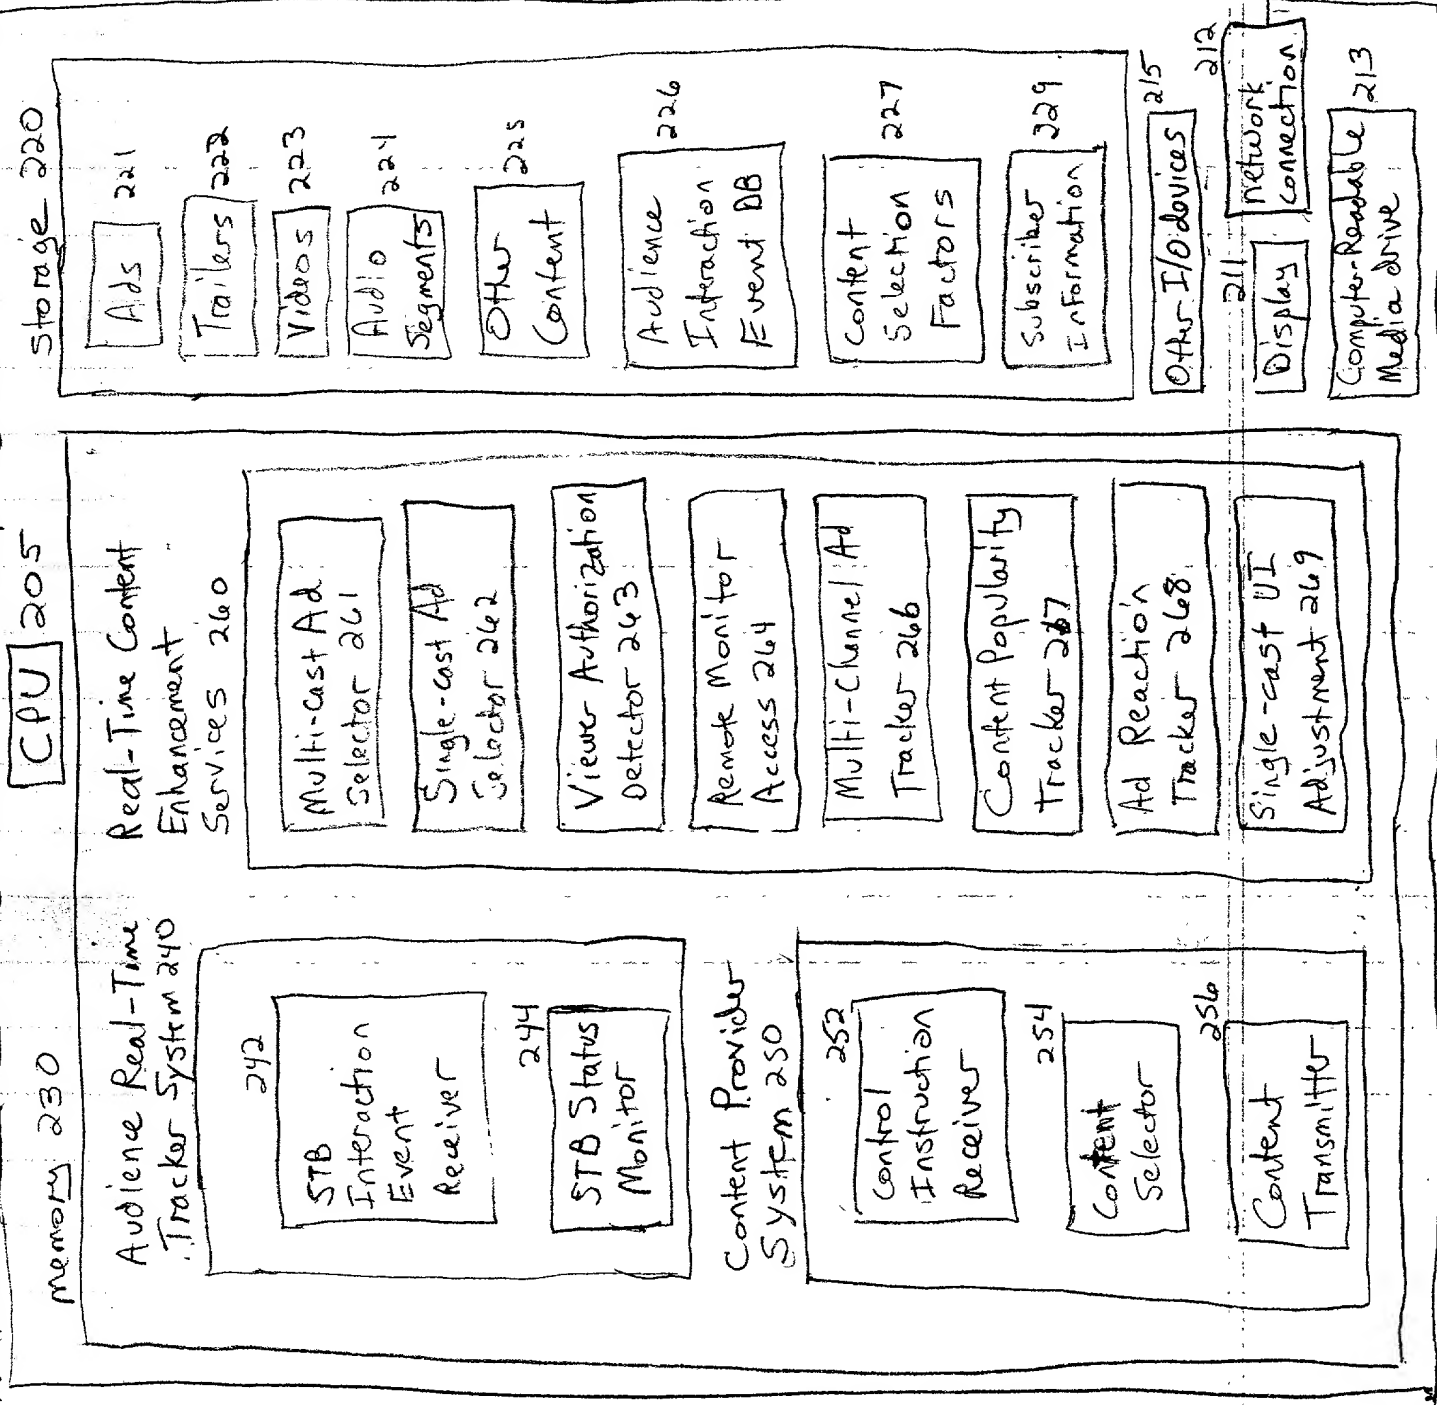 CPU 205
memory 230
Audience Real-Time
Tracker System 240
242
STB
Interaction
Event
Receiver
244
STB Status
Monitor
Content Provider
System 250
252
Control
Instruction
Receiver
254
Content
Selector
256
Content
Transmitter
Real-Time Content
Enhancement
Services 260
Multi-cast Ad
Selector 261
Single-cast Ad
Selector 262
Viewer Authorization
Detector 263
Remote Monitor
Access 264
Multi-Channel Ad
Tracker 266
Content Popularity
Tracker 267
Ad Reaction
Tracker 268
Single-cast UI
Adjustment 269
Storage 220
Ads 221
Trailers 222
Videos 223
Audio
Segments
224
Other
Content
225
Audience
Interaction
Event DB
226
Content
Selection
Factors
227
Subscriber
Information
229
Other I/O devices 215
211
Display
212
network
connection
Computer-Readable
Media drive
213